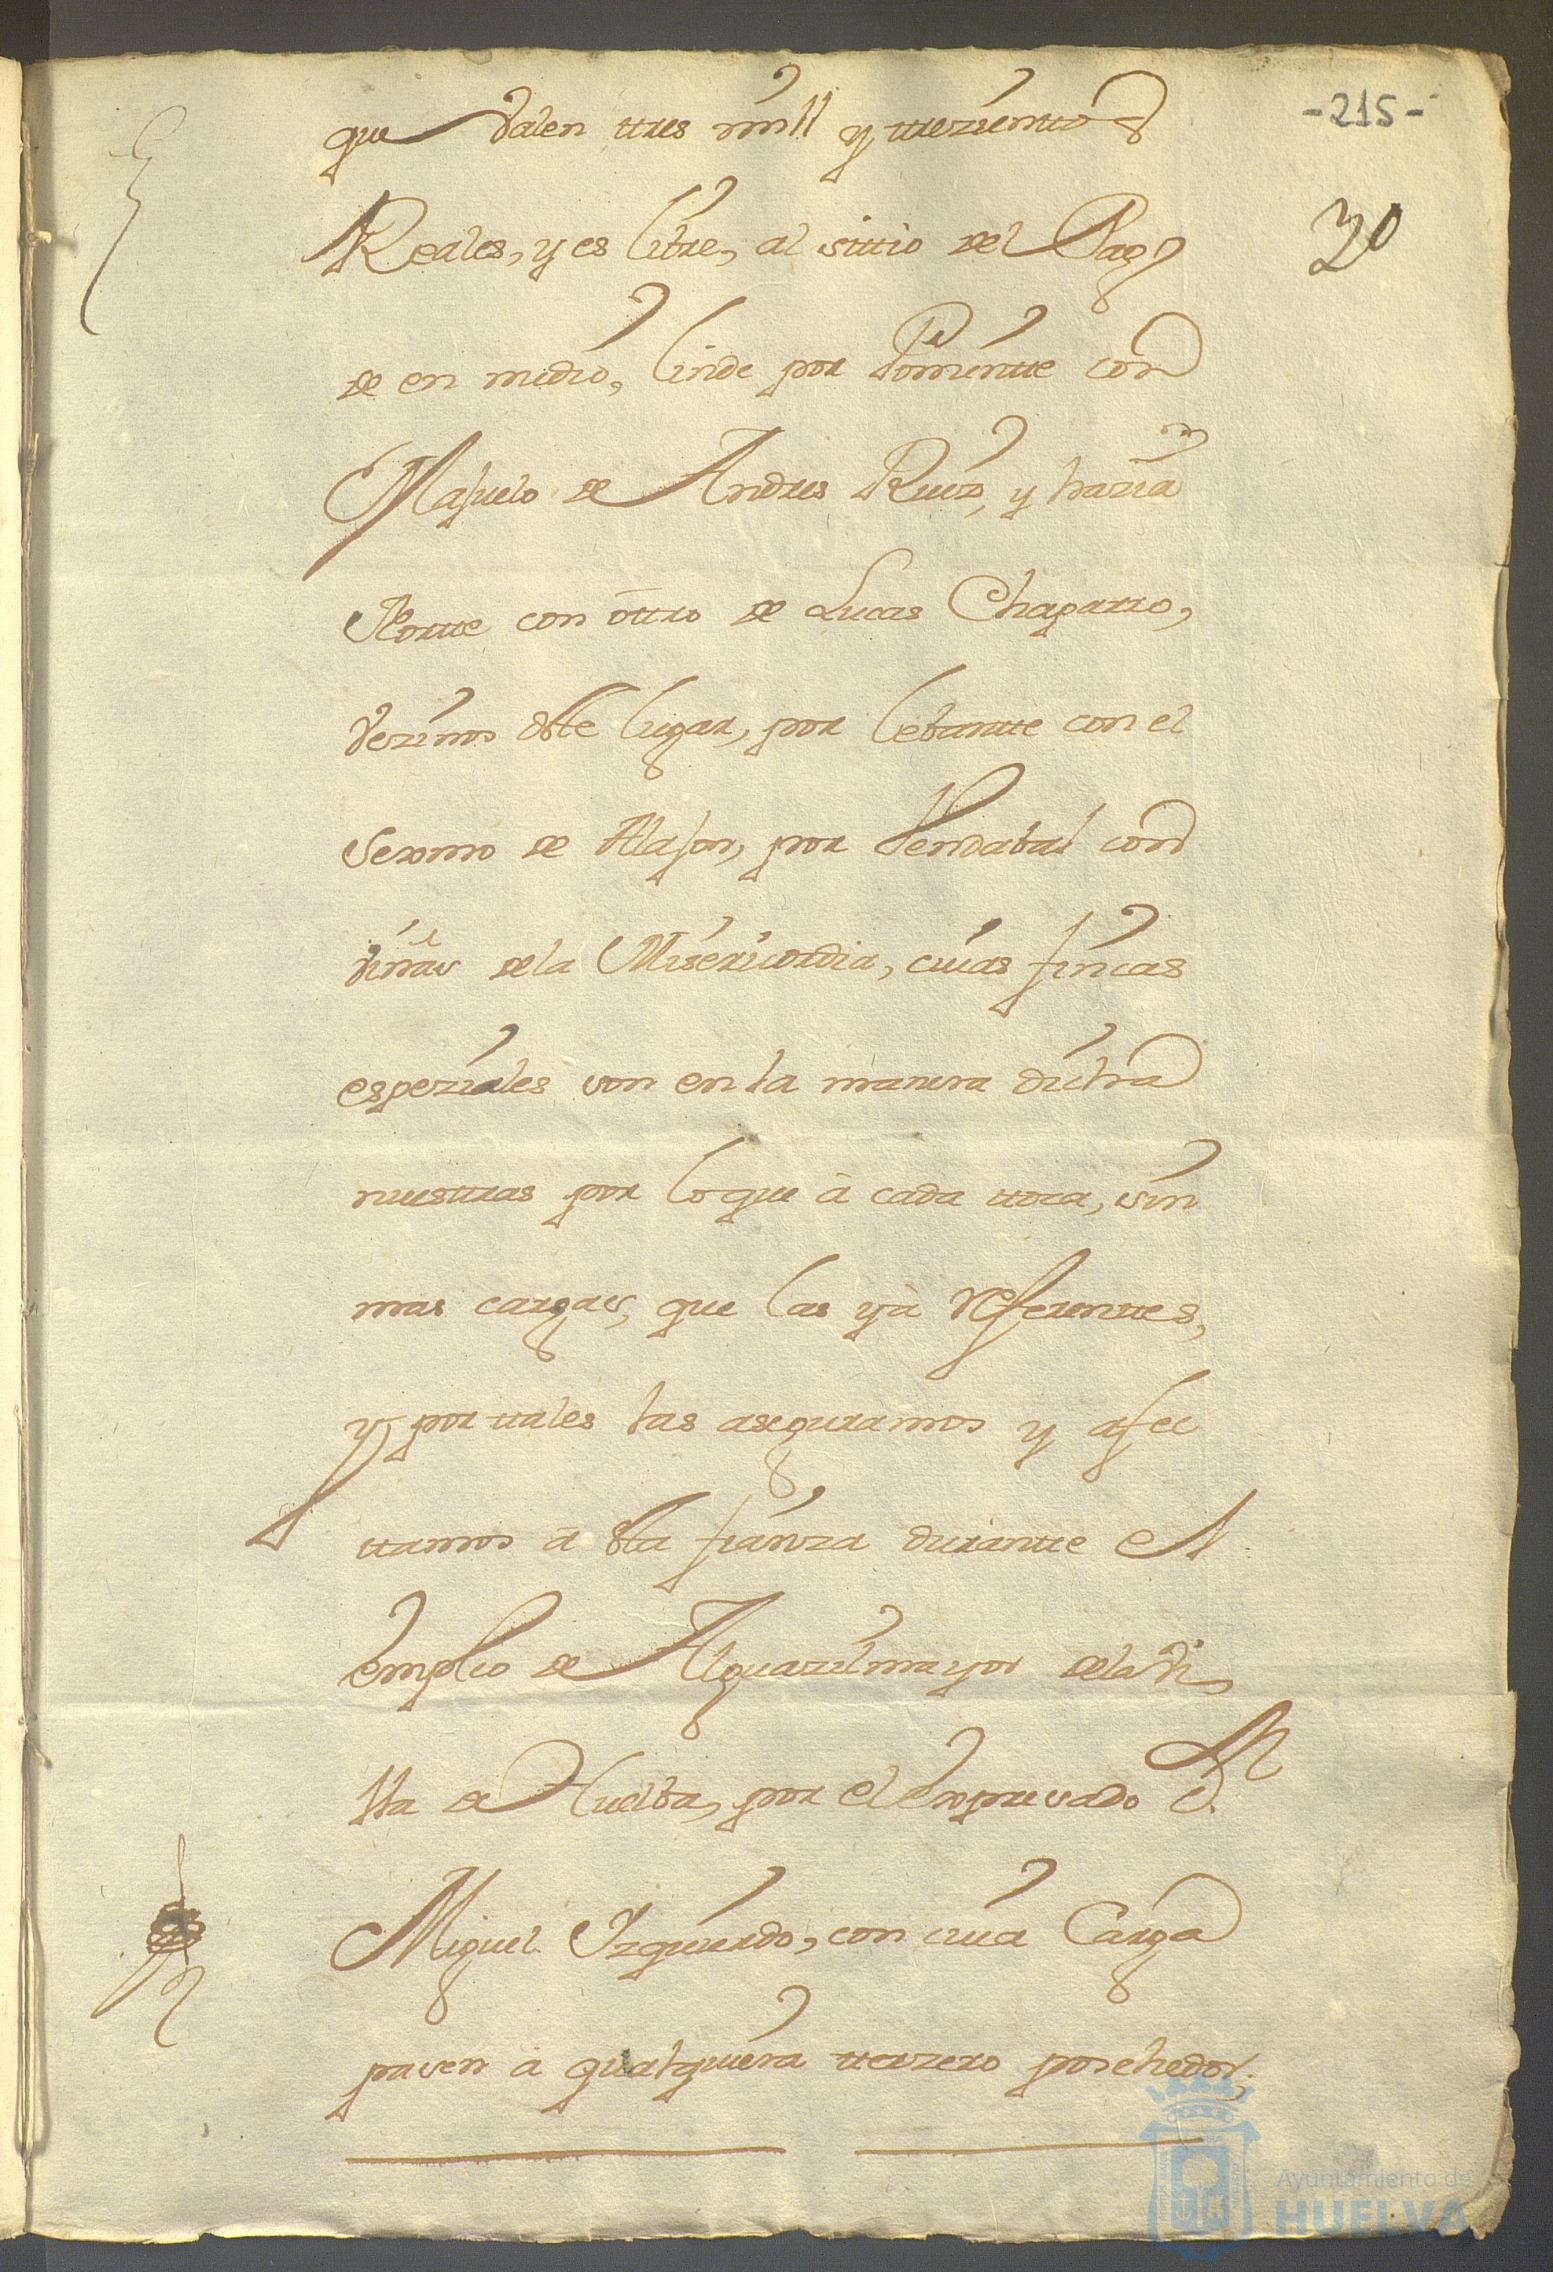 -215-
que valen ttres mill y ttrezienttos
30
Reales, y es libre, al sittio del Pag
de en medio, linde por Ponientte con
Majuelo de Andres Ruiz, y hazia
Nortte con ottro de Lucas Chaparro,
vezinos dste lugar, por lebantte con el
sexmo de Alajon, por Vendabal con
viñas de la Misericordia, cuias fincas
espeziales son en la manera dicha
nuestras por lo que à cada ttoca, sin
mas cargas, que las yà referenttes,
y por ttales las aseguramos y afec
ttamos à dsta fianza durantte el
empleo de Alguazilmayor dela Vi
lla de Huelba, por el expresado Dn.
Miguel Yzquierdo, con cuia Carga
pasen à qualquiera tterzero posehedor;
Ayuntamiento de
HUELVA